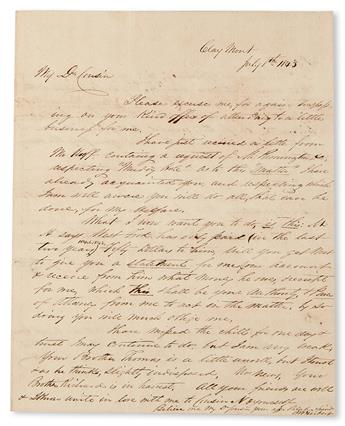 Clay Mont
July 1st 1843
My Dr Cousin
Please excuse me, for again trespassing
on your kind office of attending to a little
business for me.
I have just received a letter from
Mr containing a request of Mr
respecting note as to this matter I have
already acquainted you, and respecting which
I am well aware you will do all, that can be
done, for my
What I now want you to do is this. Mr
says West has only paid (in the last
two years) fifty dollars to him. Will you get West
to give you a statement, of my account
& receive from him what money he owes, receipt
for me, which shall be some
of from me to act in the matter, by so
doing you will much oblige me.
I have missed the chills for one day &
trust I may continue to do, but I am very weak.
Your Brother Thomas is a little unwell, but I trust
as he thinks, slightly indisposed. Your
Brother Richard is in harvest. All your friends are well
& unite in love with me to Cousin & yourself
Believe me my Dr Cousin yours